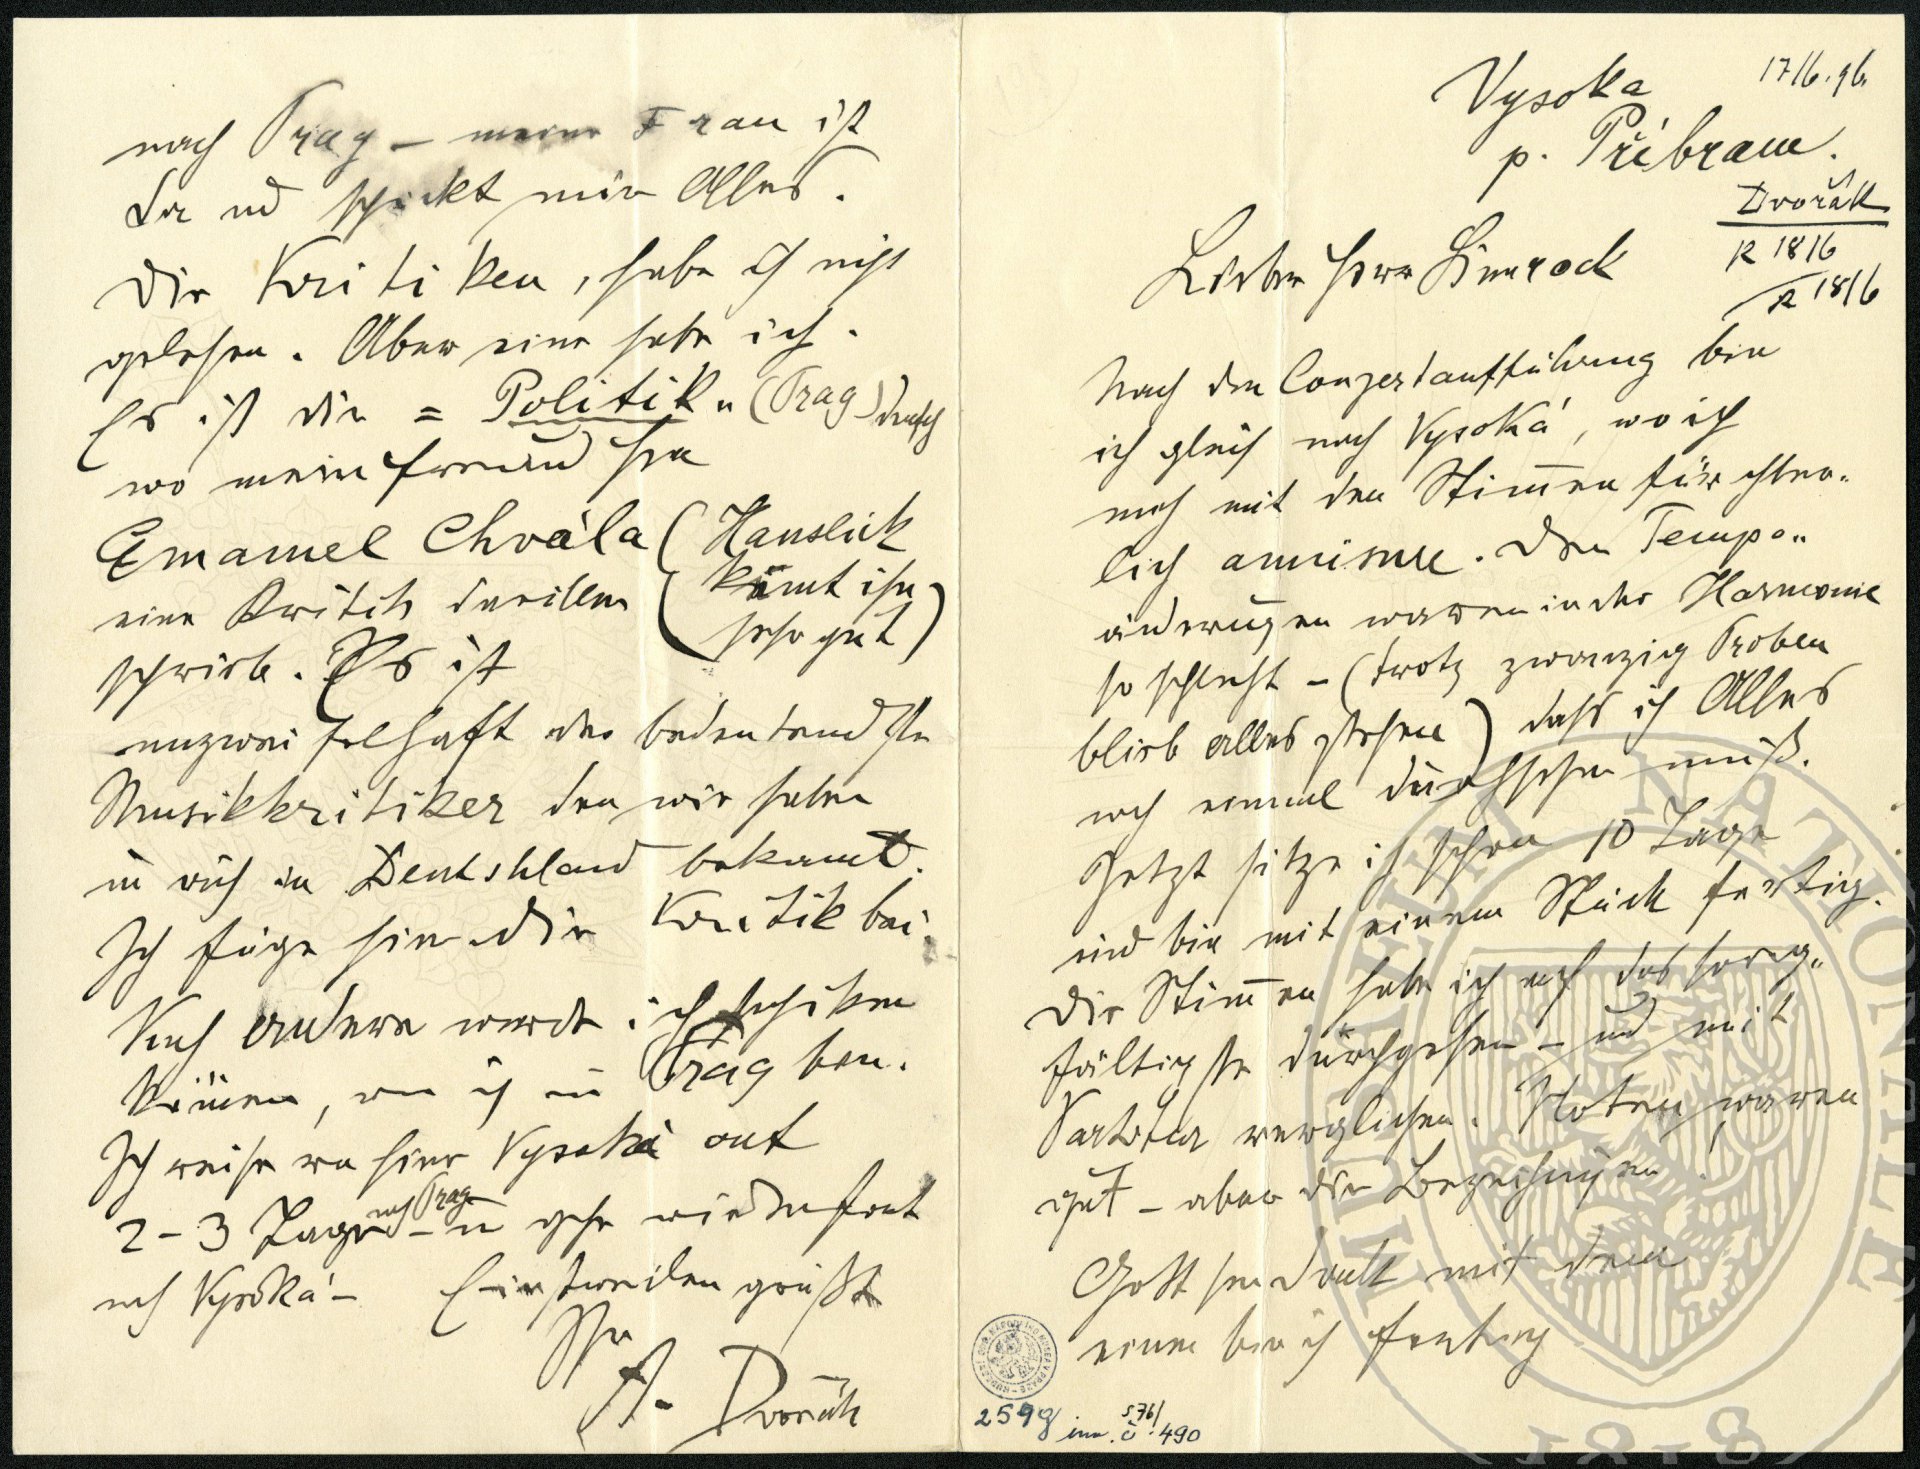 Vysoka 17/6. 96.
p. Přibram.
Dvořák
R 18/6
R 18/6
Lieber Herr Simrock
Nach der Conzertaufführung bin
ich gleich nach Vysoká, wo ich
mich mit den Stimmen fürchter-
lich amüsire. Die Tempo-
änderungen waren in der Harmonie
so schlecht – (trotz zwanzig Proben
blieb alles stehen) dass ich Alles
noch einmal durchsehen muß.
Jetzt sitze ich schon 10 Tage
und bin mit einem Stück fertig.
Die Stimmen habe ich auf das sorg-
fältigste durchgesehen – und mit
Partitur verglichen. Noten waren
gut – aber die Bezeichnungen!
Gott sei Dank mit dem
einen bin ich fertig
259g inv. č. 576/490
nach Prag – meine Frau ist
da und schickt mir Alles.
Die Kritiken, habe ich nicht
gelesen. Aber eine habe ich.
Es ist die = Politik " (Prag) deutsch
wo mein Freund Herr
Emanuel Chvàla (Hanslick
eine Kritik darüber (kennt ihn
schrieb. Es ist sehr gut)
unzweifelhaft der bedeutendste
Musikkritiker den wir haben
u auch in Deutshland bekannt.
Ich füge hier die Kritik bei.
Auch andere werde ich schiken
können, wen ich in Prag bin.
Ich reise von hier Vysoká auf
2–3 Tage nach Prag – u gehe wieder fort
nach Vysoká – Einstweilen grüßt
Ihr
A. Dvořák
MUSEUM NATIONALE
1818